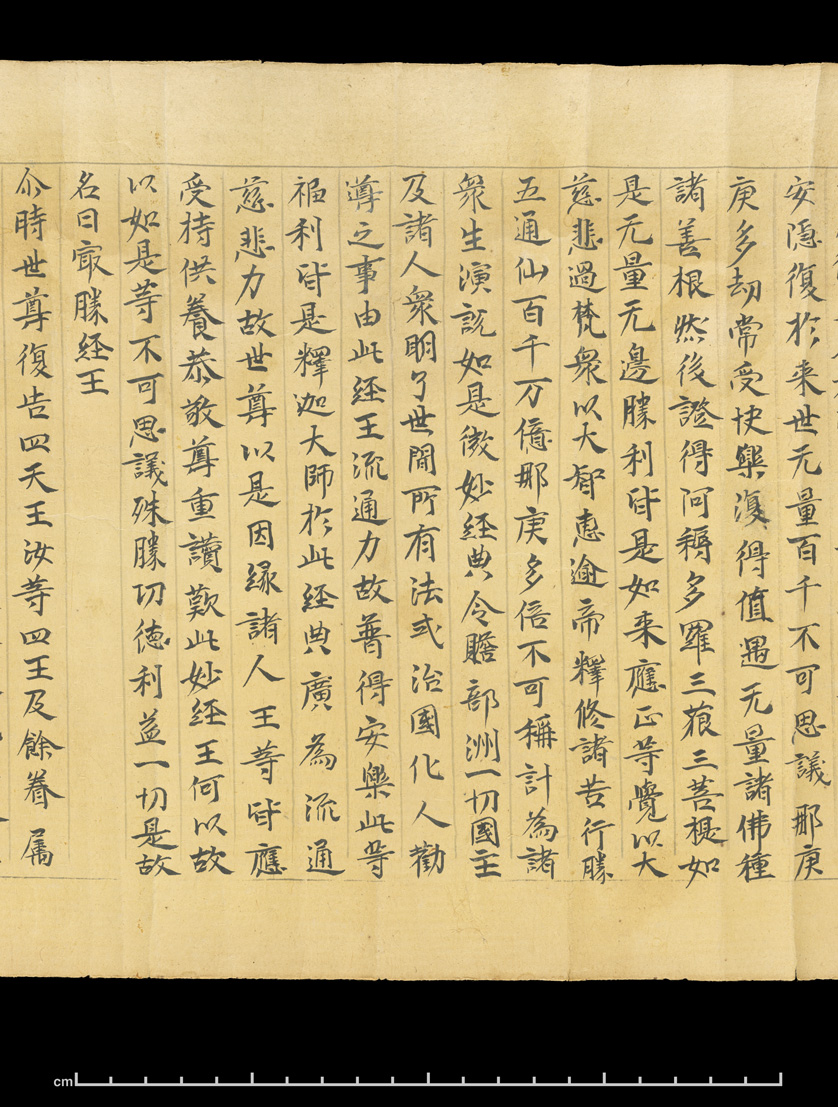 安隱復於来世无量百千不可思議那庾
庾多劫常受快樂復得值遇无量諸佛種
諸善根然後證得阿耨多羅三藐三菩提如
是无量无邊勝利皆是如来應正等覺以大
慈悲過梵衆以大智惠逾帝釋修諸苦行勝
五通仙百千万億那庾多倍不可稱計為諸
衆生演說如是微妙經典令贍部洲一切國主
及諸人衆明了世間所有法式治國化人勸
導之事由此經王流通力故普得安樂此等
福利皆是釋迦大師於此經典廣為流通
慈悲力故世尊以是因緣諸人王等皆應
受持供養恭敬尊重讚歎此妙經王何以故
以如是等不可思議殊勝功德利益一切是故
名曰冣勝經王
尒時世尊復告四天王汝等四王及餘眷属